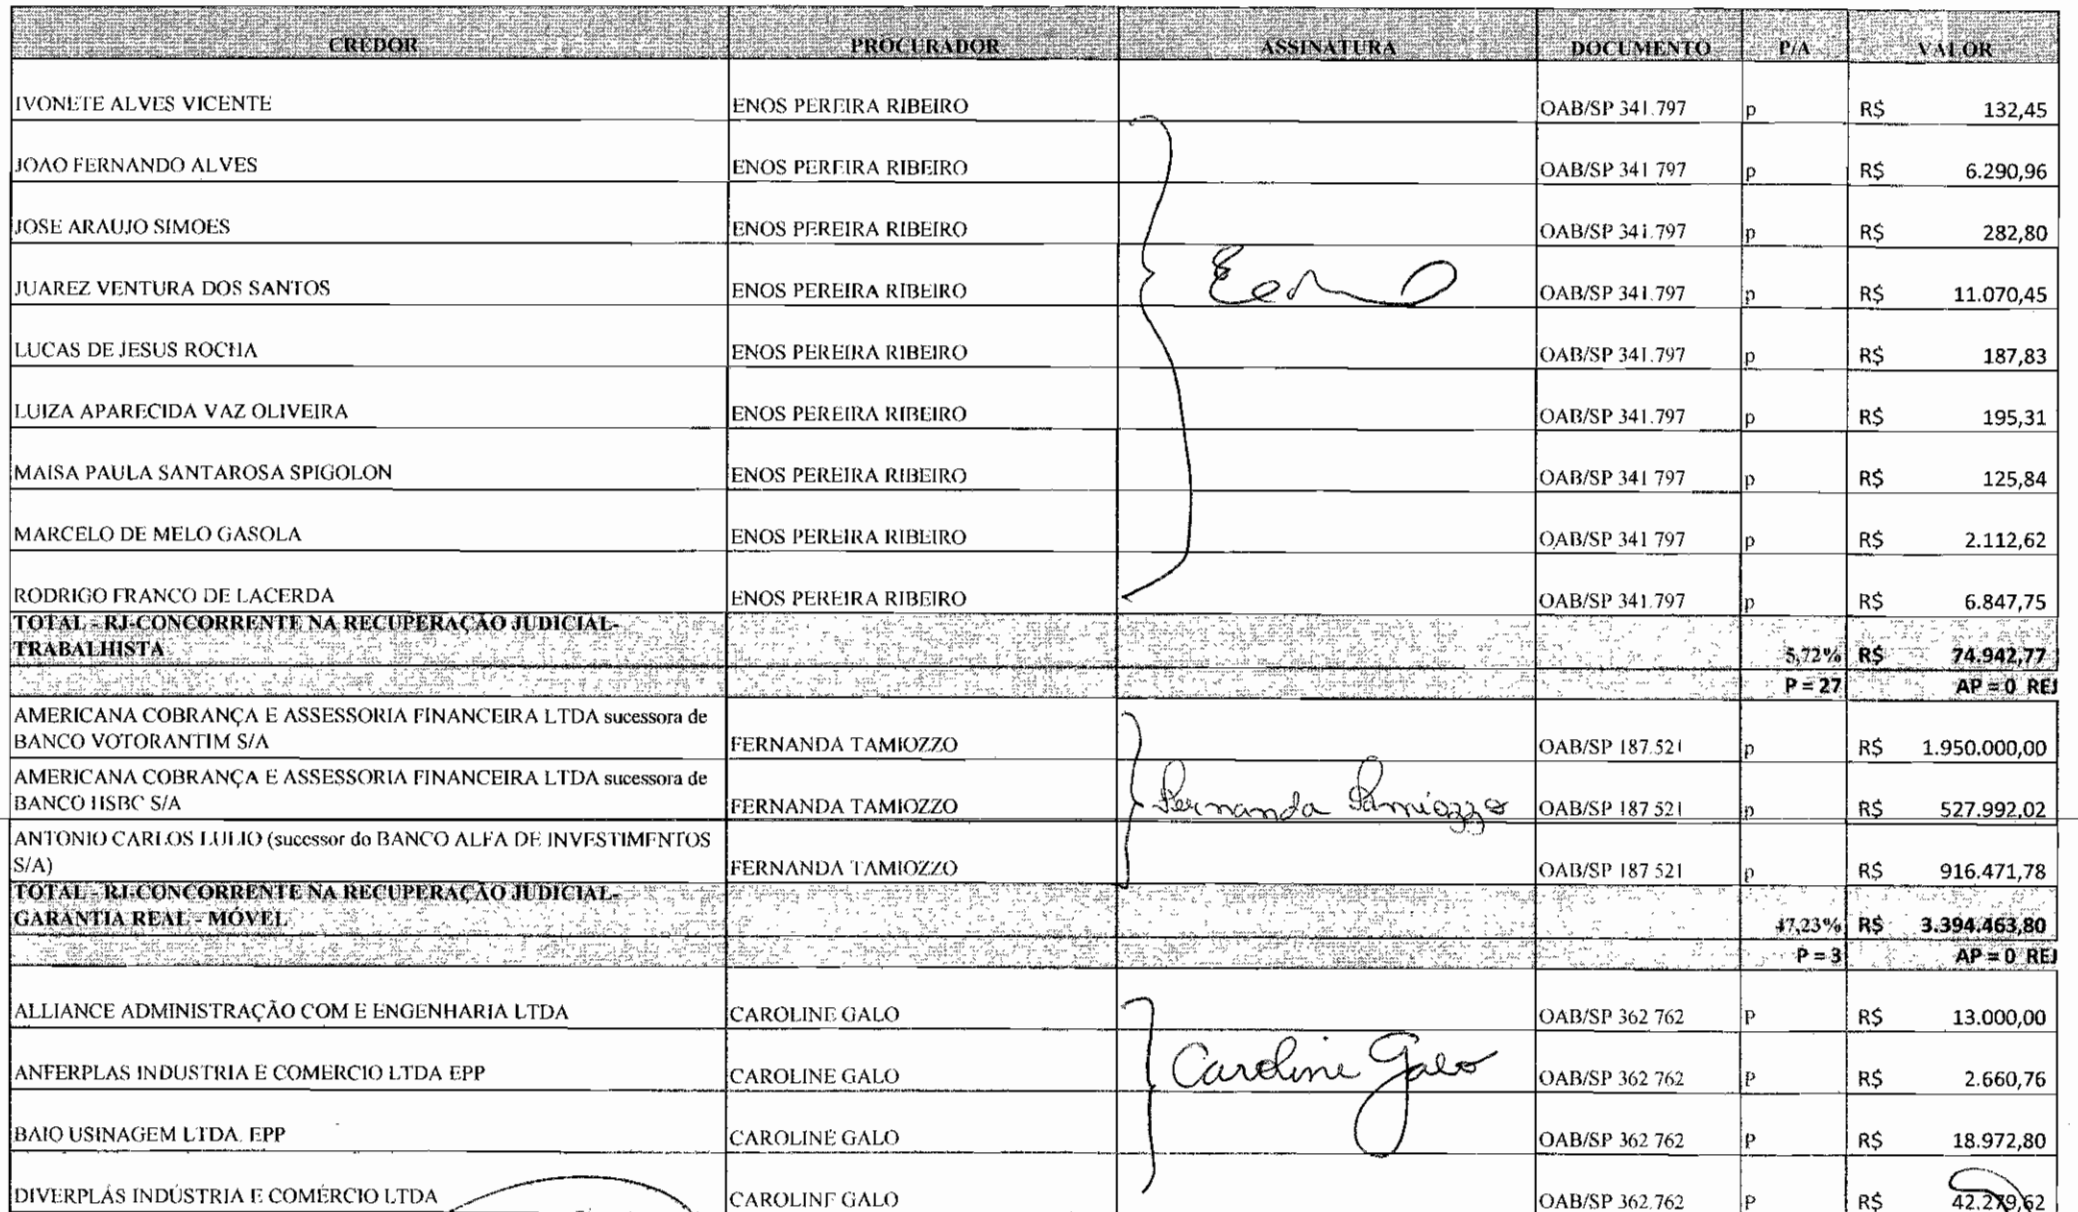 CREDOR PROCURADOR ASSINATURA DOCUMENTO P/A VALOR
IVONETE ALVES VICENTE ENOS PEREIRA RIBEIRO OAB/SP 341.797 p R$ 132,45
JOAO FERNANDO ALVES ENOS PEREIRA RIBEIRO OAB/SP 341 797 p R$ 6.290,96
JOSE ARAUJO SIMOES ENOS PEREIRA RIBEIRO OAB/SP 341.797 p R$ 282,80
JUAREZ VENTURA DOS SANTOS ENOS PEREIRA RIBEIRO OAB/SP 341.797 p R$ 11.070,45
LUCAS DE JESUS ROCHA ENOS PEREIRA RIBEIRO OAB/SP 341.797 p R$ 187,83
LUIZA APARECIDA VAZ OLIVEIRA ENOS PEREIRA RIBEIRO OAB/SP 341.797 p R$ 195,31
MAISA PAULA SANTAROSA SPIGOLON ENOS PEREIRA RIBEIRO OAB/SP 341 797 p R$ 125,84
MARCELO DE MELO GASOLA ENOS PEREIRA RIBEIRO OAB/SP 341 797 p R$ 2.112,62
RODRIGO FRANCO DE LACERDA ENOS PEREIRA RIBEIRO OAB/SP 341.797 p R$ 6.847,75
TOTAL - RJ-CONCORRENTE NA RECUPERAÇÃO JUDICIAL-
TRABALHISTA 5,72% R$ 74.942,77
P = 27 AP = 0 REJ
AMERICANA COBRANÇA E ASSESSORIA FINANCEIRA LTDA sucessora de
BANCO VOTORANTIM S/A FERNANDA TAMIOZZO OAB/SP 187.521 p R$ 1.950.000,00
AMERICANA COBRANÇA E ASSESSORIA FINANCEIRA LTDA sucessora de
BANCO HSBC S/A FERNANDA TAMIOZZO Fernanda Tamiozzo OAB/SP 187 521 p R$ 527.992,02
ANTONIO CARLOS LULIO (sucessor do BANCO ALFA DE INVESTIMENTOS
S/A) FERNANDA TAMIOZZO OAB/SP 187 521 p R$ 916.471,78
TOTAL - RJ-CONCORRENTE NA RECUPERAÇÃO JUDICIAL-
GARANTIA REAL - MÓVEL 47,23% R$ 3.394.463,80
P = 3 AP = 0 REJ
ALLIANCE ADMINISTRAÇÃO COM E ENGENHARIA LTDA CAROLINE GALO OAB/SP 362 762 P R$ 13.000,00
ANFERPLAS INDUSTRIA E COMERCIO LTDA EPP CAROLINE GALO Caroline Galo OAB/SP 362 762 P R$ 2.660,76
BAIO USINAGEM LTDA. EPP CAROLINE GALO OAB/SP 362 762 P R$ 18.972,80
DIVERPLÁS INDÚSTRIA E COMÉRCIO LTDA CAROLINE GALO OAB/SP 362.762 P R$ 42.279,62